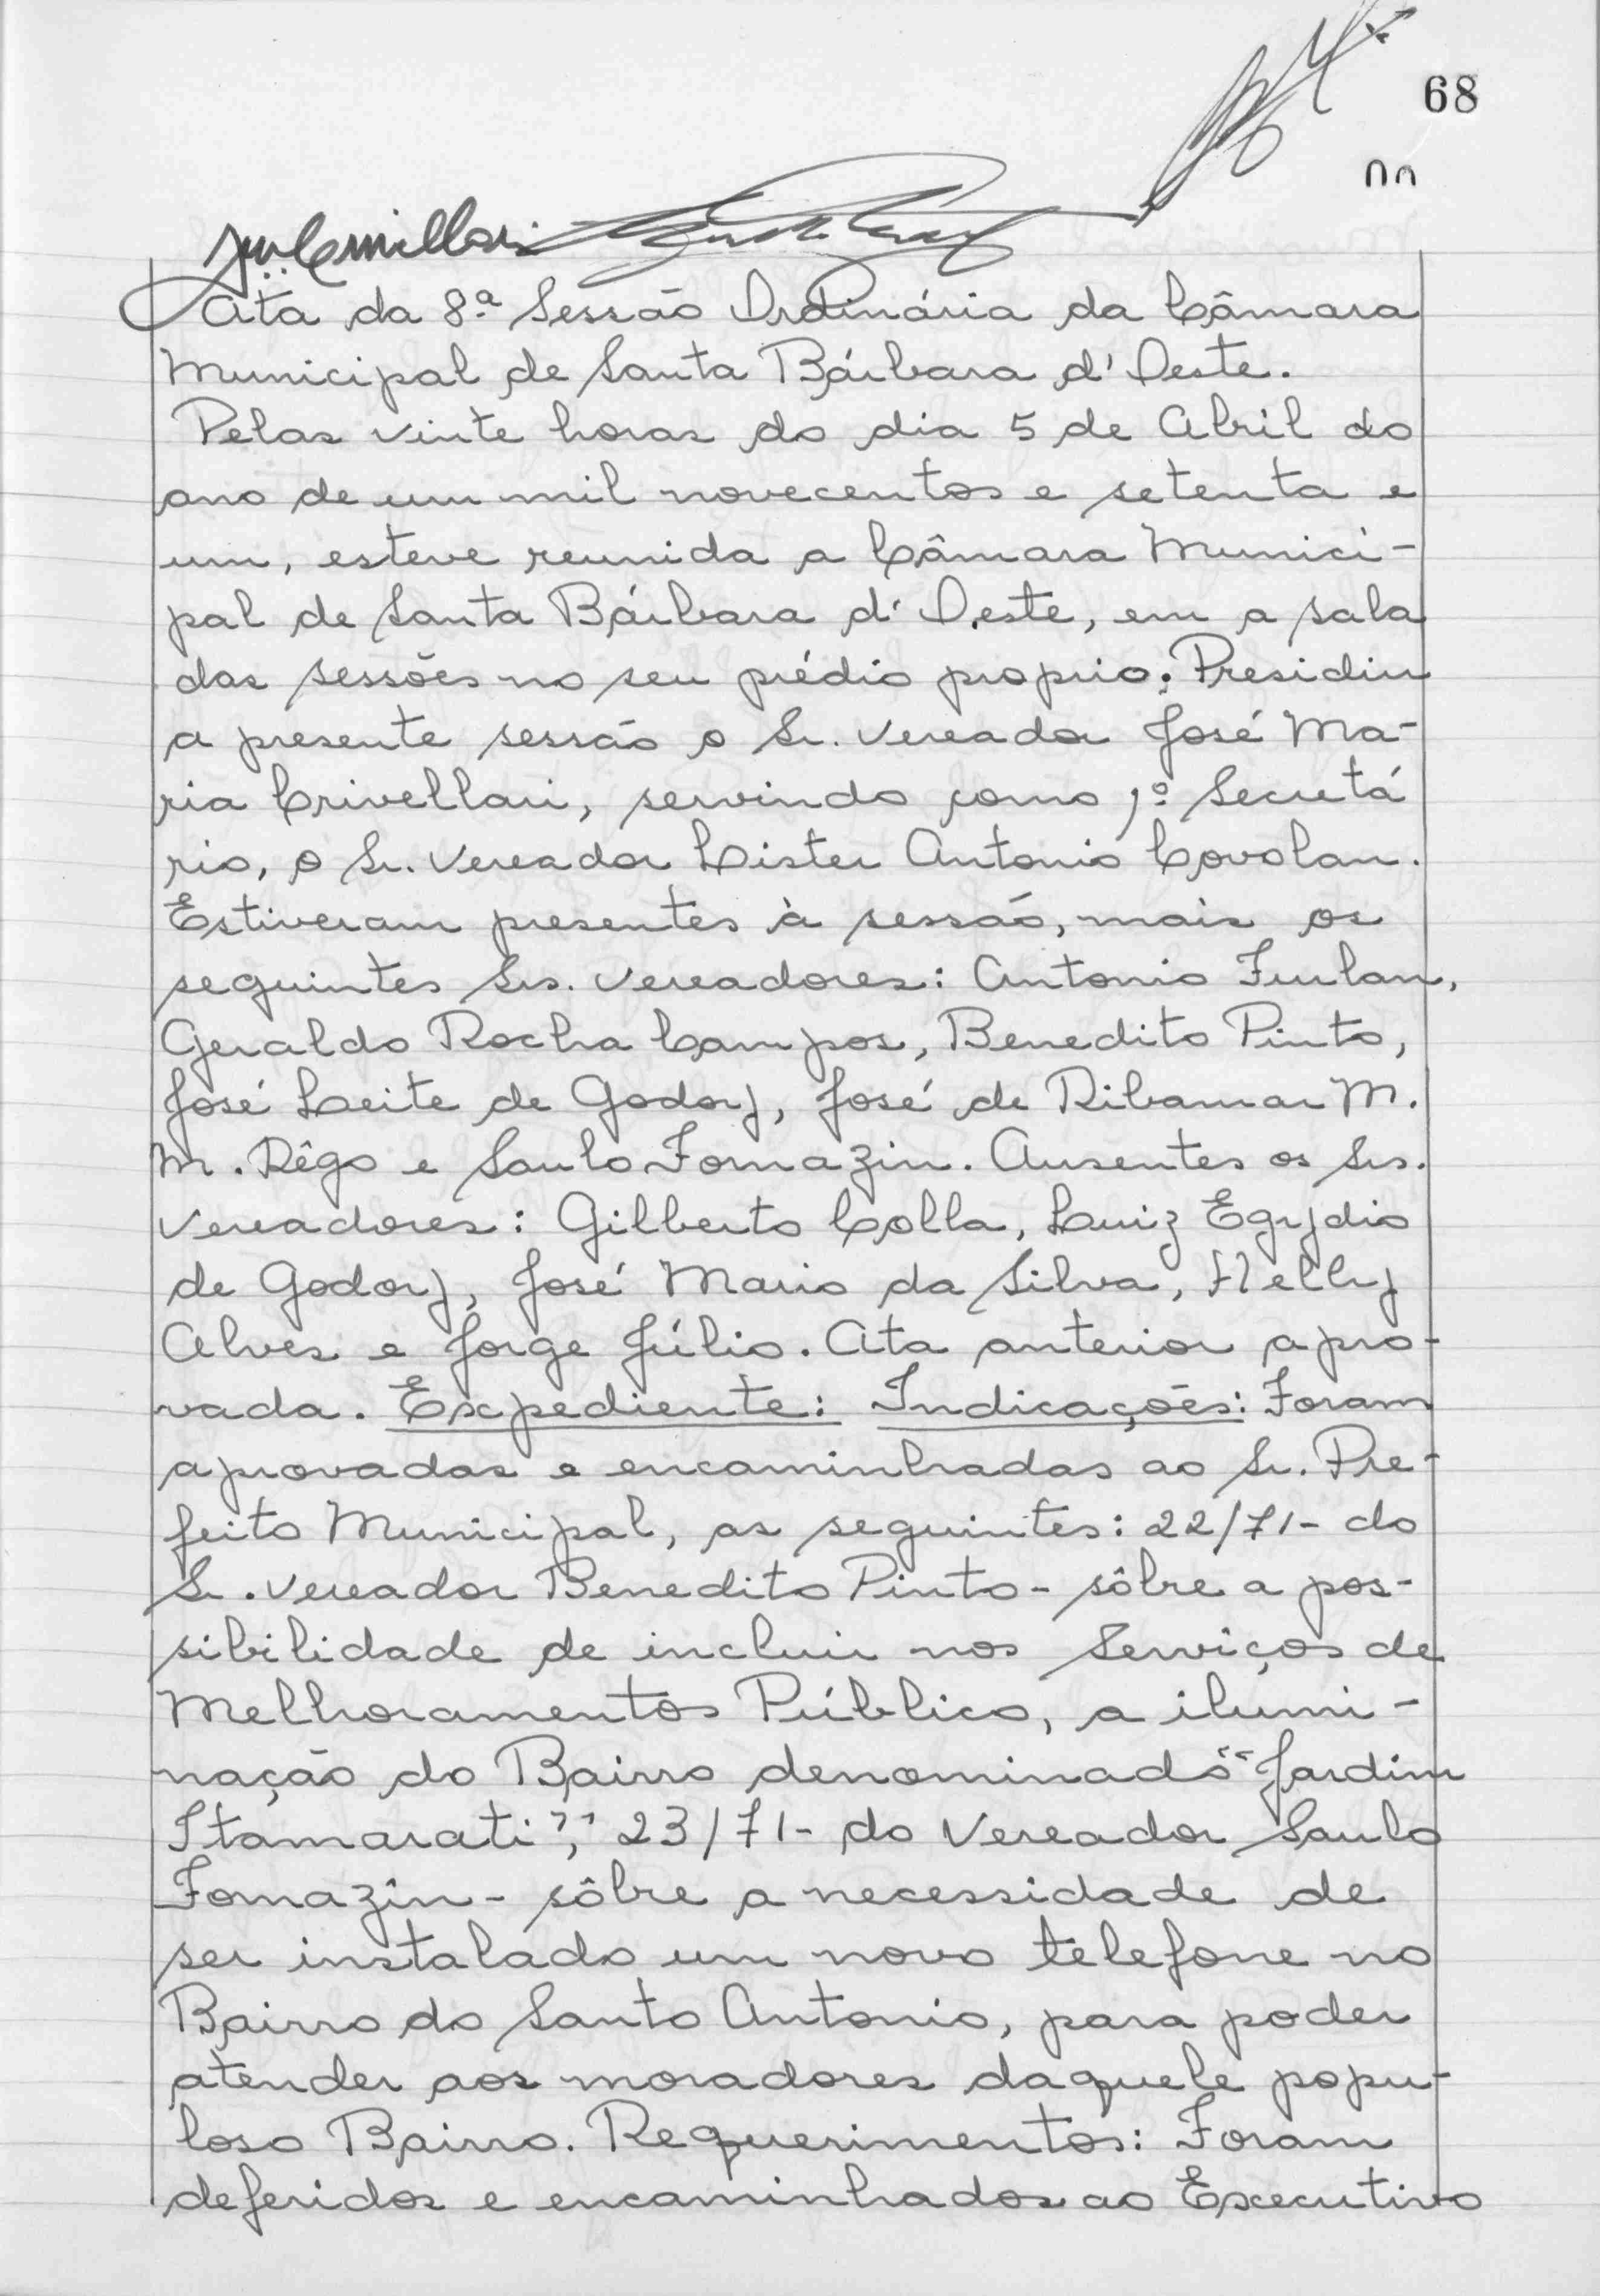 68
Ata da 8ª Sessão Ordinária da Câmara
Municipal de Santa Bárbara d'Oeste.
Pelas vinte horas do dia 5 de Abril do
ano de um mil novecentos e setenta e
um, esteve reunida a Câmara Munici-
pal de Santa Bárbara d'Oeste, em a sala
das sessões no seu prédio proprio. Presidiu
a presente sessão o Sr. Vereador José Ma-
ria Crivellari, servindo como 1º Secretá
rio, o Sr. Vereador Lister Antonio Covolan.
Estiveram presentes à sessão, mais os
seguintes Srs. Vereadores: Antonio Furlan,
Geraldo Rocha Campos, Benedito Pinto,
José Leite de Godoy, José de Ribamar M.
M. Rêgo e Saulo Fornazin. Ausentes os Srs.
Vereadores: Gilberto Colla, Luiz Egydio
de Godoy, José Mario da Silva, Helly
Alves e Jorge Júlio. Ata anterior apro-
vada. Expediente: Indicações: Foram
aprovadas e encaminhadas ao Sr. Pre-
feito Municipal, as seguintes: 22/71- do
Sr. Vereador Benedito Pinto - sôbre a pos-
sibilidade de incluir nos Serviços de
Melhoramentos Público, a ilumi-
nação do Bairro denominado "Jardim
Itamarati", 23/71- do Vereador Saulo
Fornazin - sôbre a necessidade de
ser instalado um novo telefone no
Bairro do Santo Antonio, para poder
atender aos moradores daquele popu-
loso Bairro. Requerimentos: Foram
deferidos e encaminhados ao Executivo